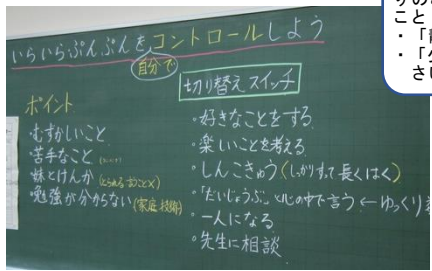 いらいらぷんぷんをコントロールしよう
自分で
切り替えスイッチ
ポイント
・むずかしいこと
・苦手なこと
・妹とけんか
・勉強が分からない(家庭,技術)
・好きなことをする
・楽しいことを考える
・しんこきゅう(しっかりすって長くはく)
・「だいじょうぶ」と心の中で言う←ゆっくり
・一人になる
・先生に相談
こと
・「
・「
さい